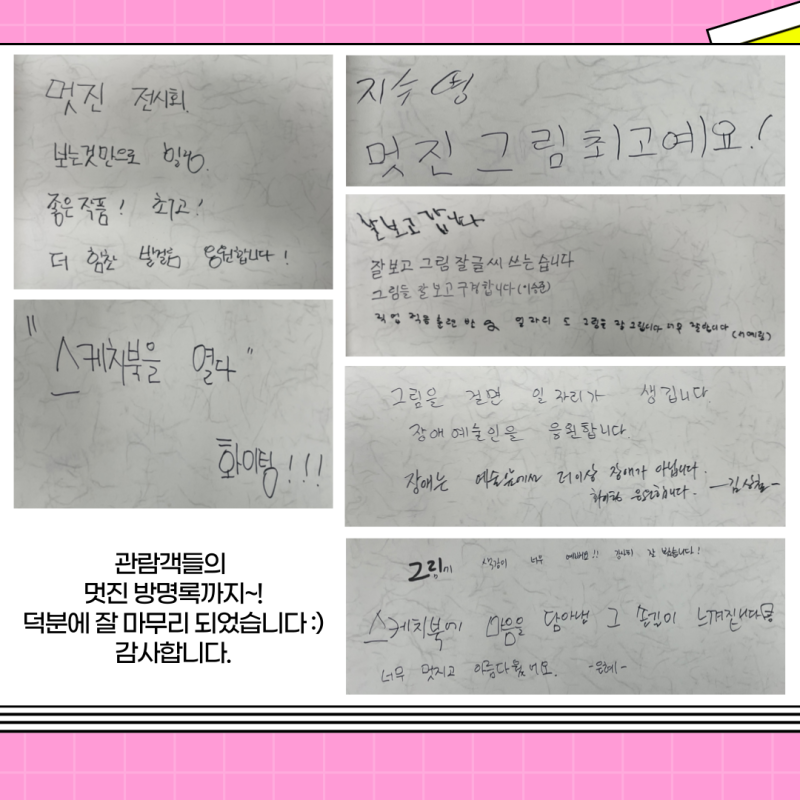 멋진 전시회.
보는것만으로 힐링.
좋은작품! 최고!
더 힘찬 발걸음 응원합니다!
"스케치북을 열다"
화이팅!!!
지수
멋진 그림 최고예요!
잘보고 갑니다
잘보고 그림 잘 글씨 쓰는 습니다
그림들 잘 보고 구경합니다(이승준)
직업 적응훈련반 일자리 도 그림을 잘 그립니다 너무 잘합니다
그림을 걸면 일자리가 생깁니다.
장애예술인을 응원합니다.
장애는 예술앞에서 더이상 장애가 아닙니다.
화이팅 응원합니다. -김상철-
그림이 색감이 너무 예뻐요!! 전시회 잘 봤습니다!
스케치북에 마음을 담아낸 그 손길이 느껴집니다
너무 멋지고 아름다웠어요. -은혜-
관람객들의
멋진 방명록까지~!
덕분에 잘 마무리 되었습니다 :)
감사합니다.